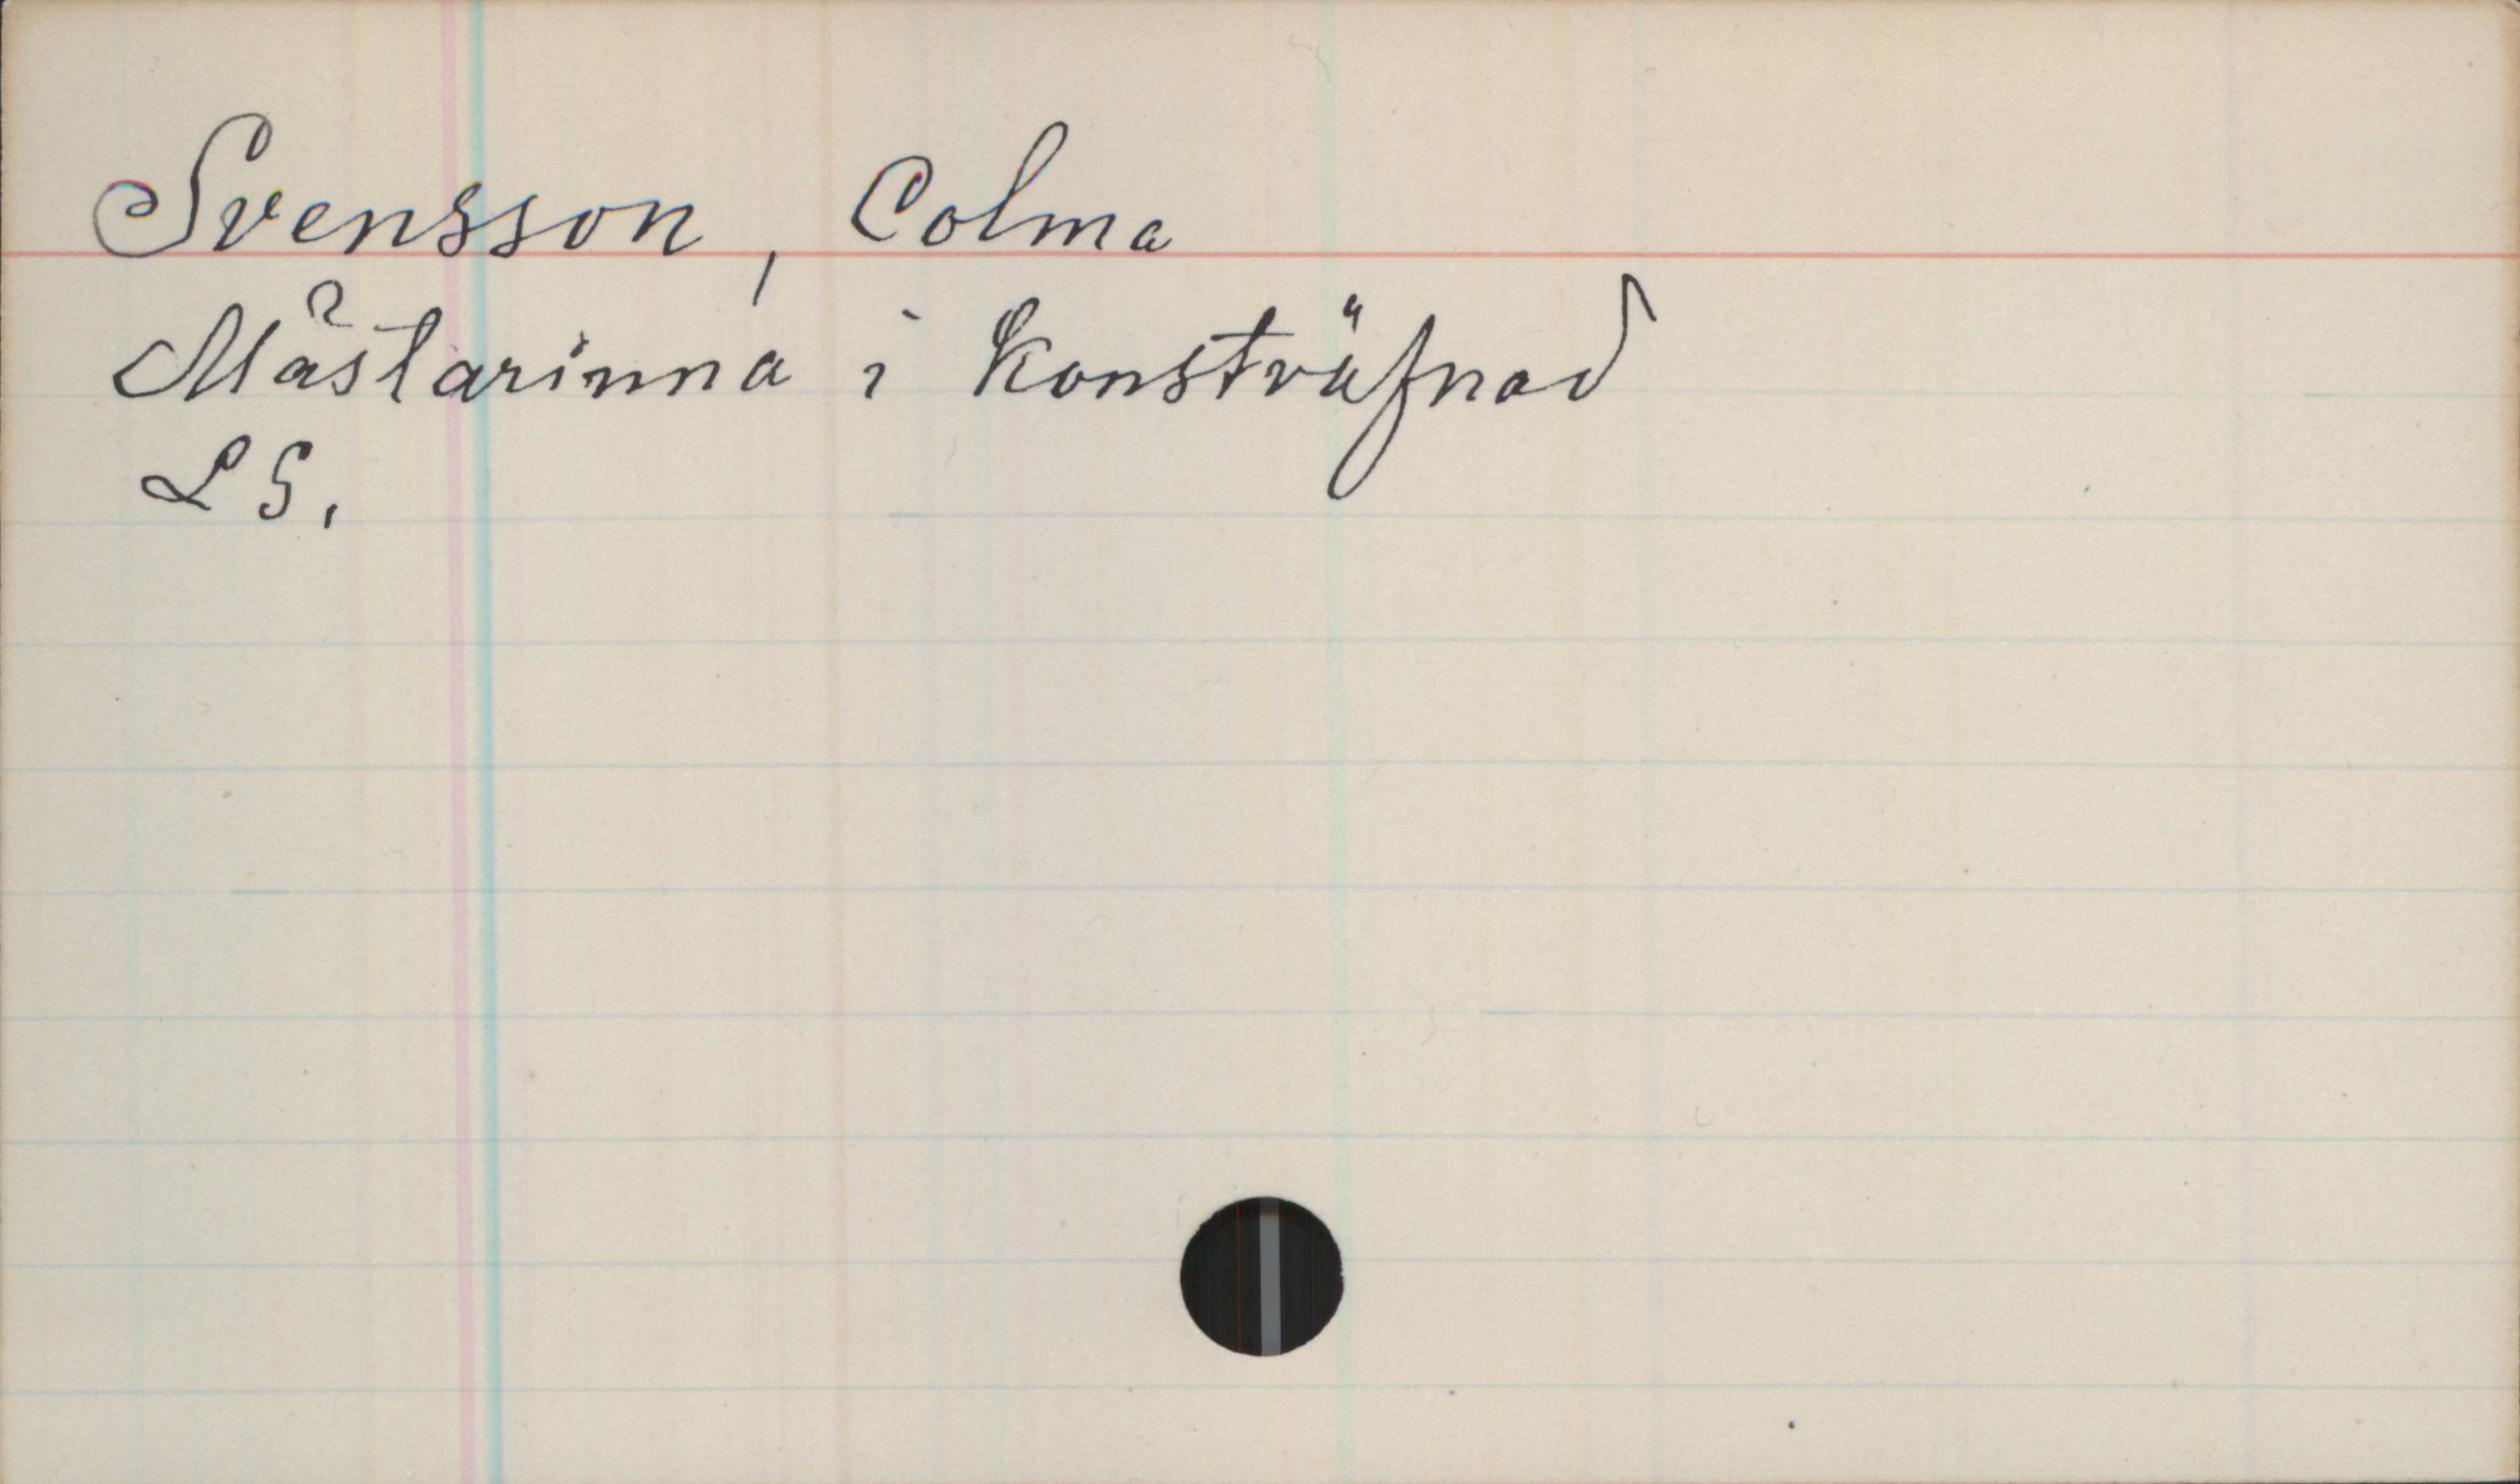 Svensson, Colma
Mästarinna i konstväfnad
LS.